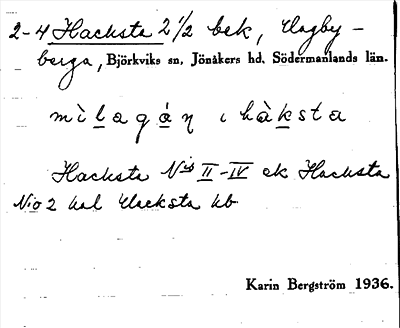 2-4 Hacksta 2 1/2 bek, Hagby-
berga, Björkviks sn, Jönåkers hd, Södermanlands län.
mìlagán ı hàksta
Hacksta No II-IV ek Hacksta
No 2 kal Hacksta kb
Karin Bergström 1936.